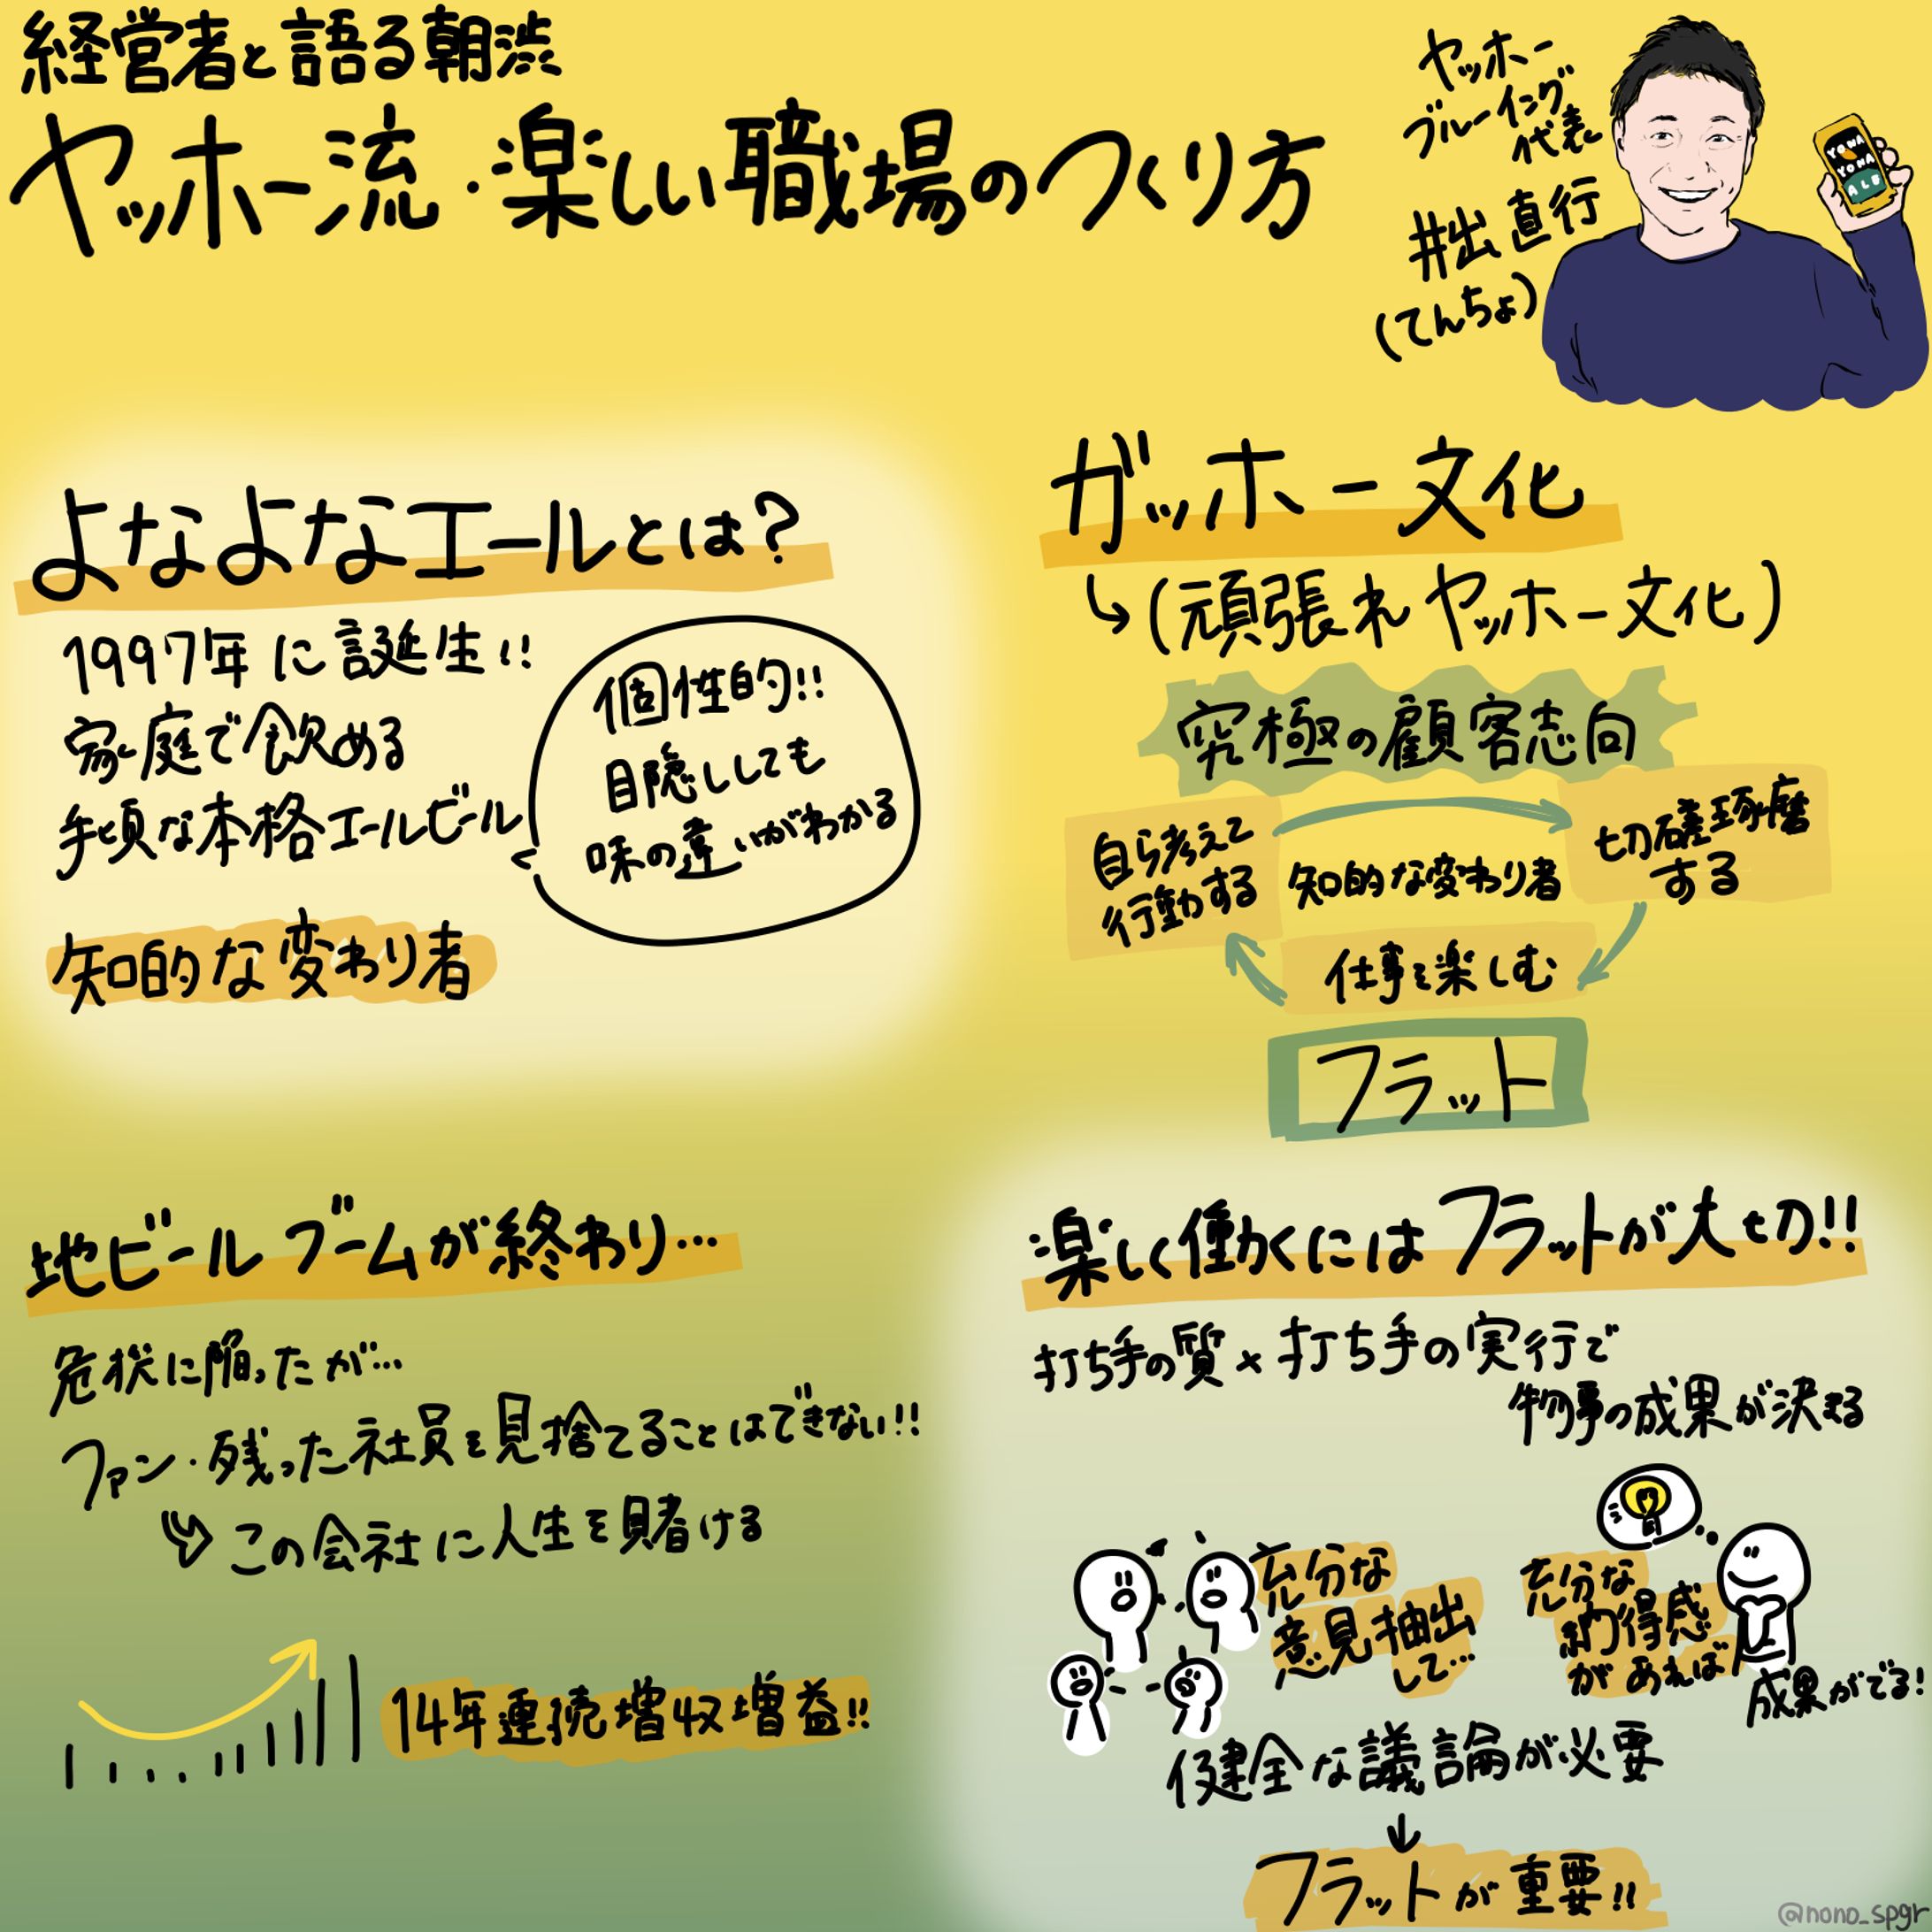 経営者と語る朝渋
ヤッホー流・楽しい職場のつくり方
ヤッホー
ブルーイング
代表
井出 直行
(てんちょ)
YONA
YONA
ALE
よなよなエールとは?
1997年に誕生!!
家庭で飲める
手頃な本格エールビール
個性的!!
目隠ししても
味の違いがわかる
知的な変わり者
ガッホー文化
(頑張れヤッホー文化)
究極の顧客志向
自ら考えて
行動する
知的な変わり者
切磋琢磨
する
仕事を楽しむ
フラット
地ビールブームが終わり…
危状に陥ったが…
ファン・残った社員を見捨てることはできない!!
この会社に人生を賭ける
14年連続増収増益!!
楽しく働くにはフラットが大切!!
打ち手の質×打ち手の実行で
物事の成果が決まる
充分な
意見抽出
して…
充分な
納得感
があれば
成果がでる!
健全な議論が必要
フラットが重要!!
@nono_spgr